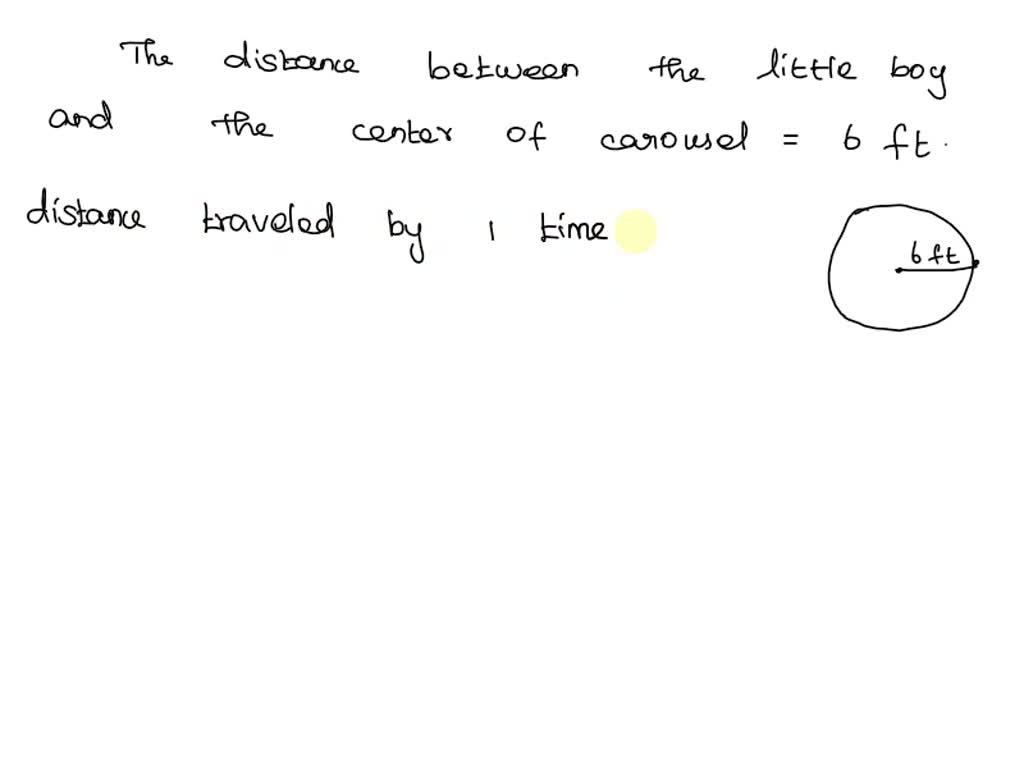 The distance between the little boy
and the center of carousel = 6 ft.
distance traveled by 1 time
6 ft